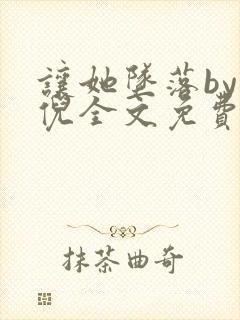 讓她墜落by
倪全文免費
抹茶曲奇